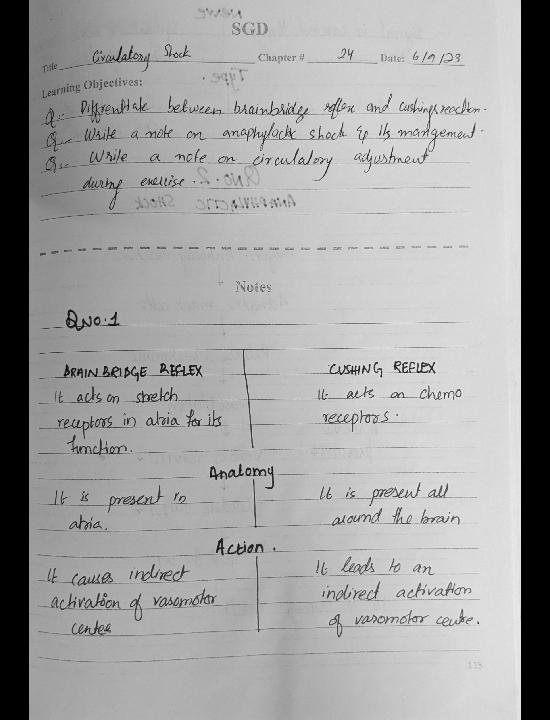 SGD
Title Circulatory Shock Chapter # 24 Date: 6/9/23
Learning Objectives:
Q:- Differentiate between brainbridge reflex and cushings reaction.
Q:- Write a note on anaphylactic shock & its mangement.
Q:- Write a note on circulatory adjustment
during exercise.
Notes
QNO.1
BRAIN BRIDGE REFLEX CUSHING REFLEX
It acts on stretch It acts on chemo
receptors in atria for its receptors.
function.
Anatomy
It is present in It is present all
atria. around the brain
Action.
It causes indirect It leads to an
activation of vasomotor indirect activation
center of vasomotor centre.